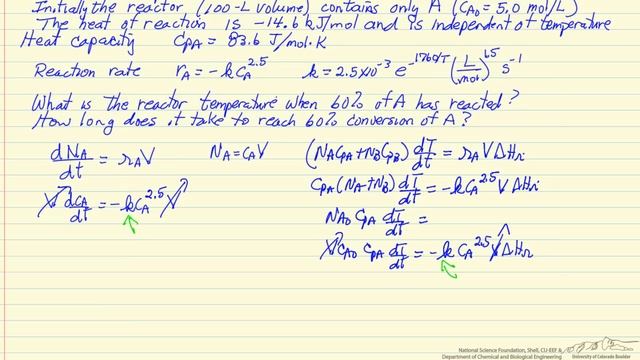 Initially the reactor (100-L volume) contains only A (C_A0 = 5.0 mol/L)
The heat of reaction is -14.6 kJ/mol and is independent of temperature
Heat capacity C_PA = 83.6 J/mol·K
Reaction rate r_A = -kC_A^2.5 k = 2.5×10^-3 e^-1760/T (L/mol)^1.5 s^-1
What is the reactor temperature when 60% of A has reacted?
How long does it take to reach 60% conversion of A?
dN_A/dt = r_A V N_A = C_A V
V dC_A/dt = -kC_A^2.5 V
(N_A C_PA + N_B C_PB) dT/dt = r_A V ΔH_r
C_PA (N_A + N_B) dT/dt = -kC_A^2.5 V ΔH_r
N_A0 C_PA dT/dt =
V C_A0 C_PA dT/dt = -kC_A^2.5 V ΔH_r
National Science Foundation, Shell, CU-EEF &
Department of Chemical and Biological Engineering
University of Colorado Boulder